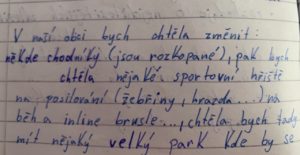 V naší obci bych chtěla změnit:
někde chodníky (jsou rozkopané), pak bych
chtěla nějaké sportovní hřiště
na posilování (žebřiny, hrazda...) na
běh a inline brusle..., chtěla bych tady
mít nějaký velký park kde by se